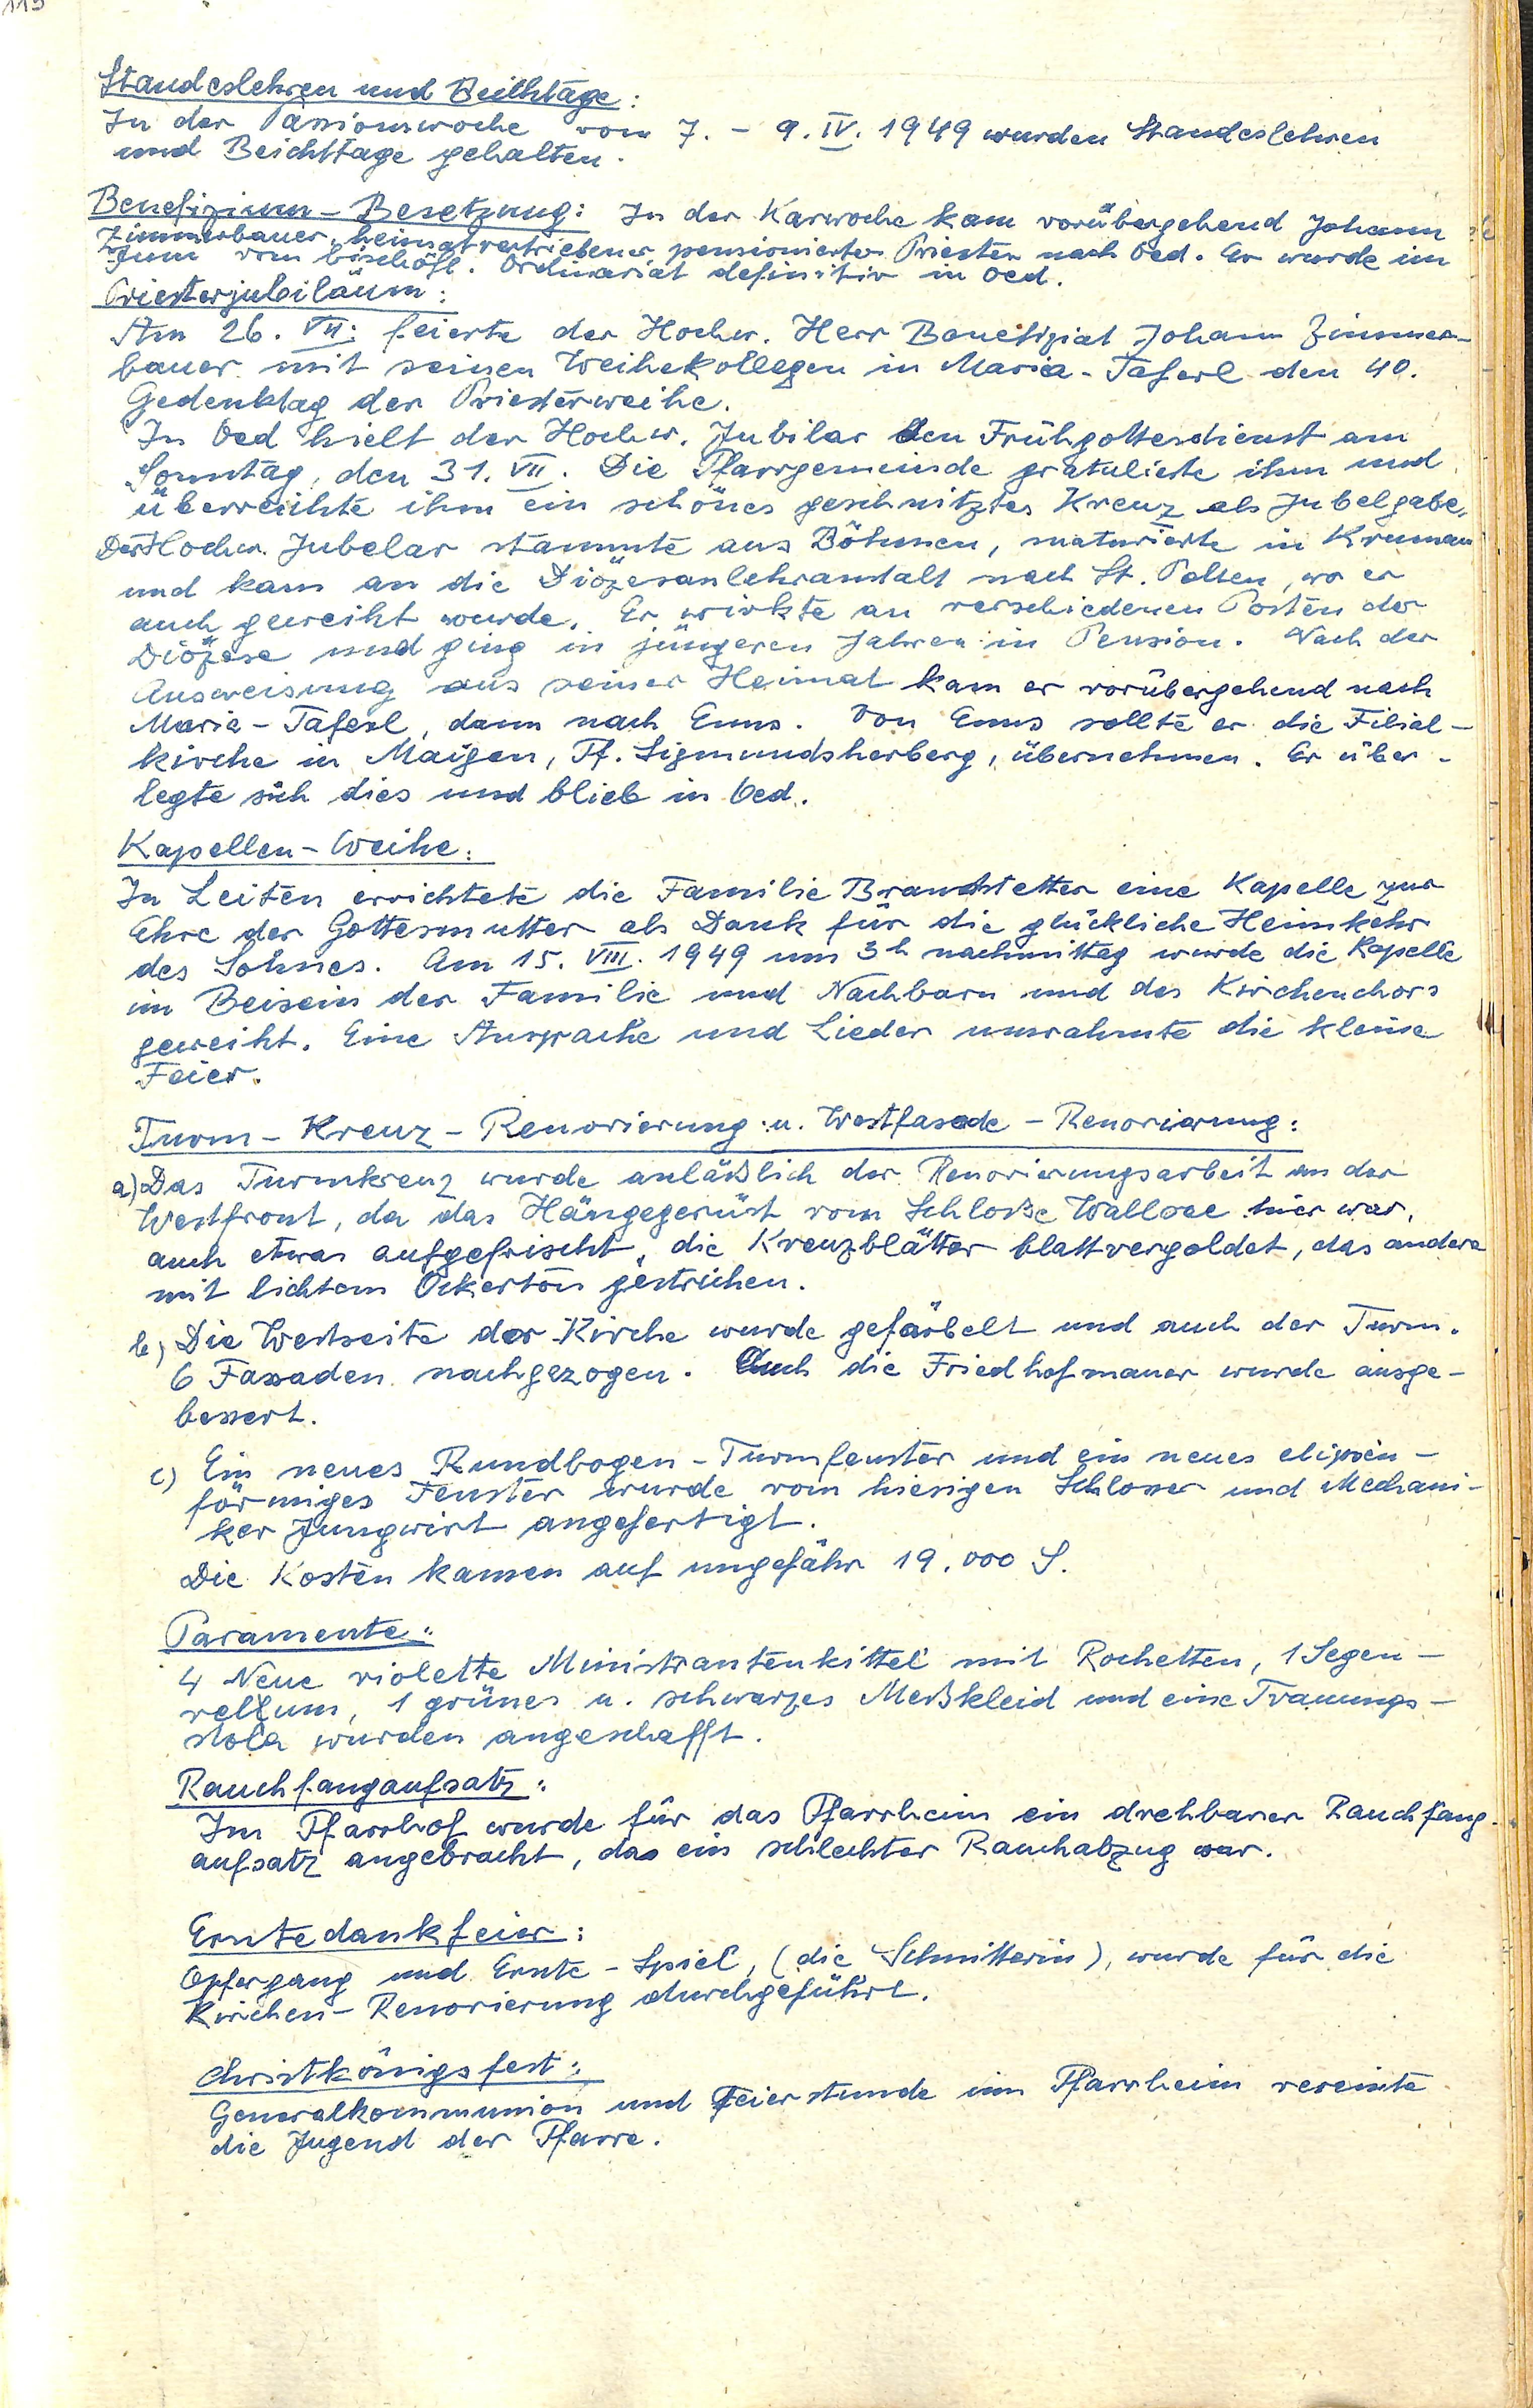 Standeslehren und Beichtage:
In der Passionswoche vom 7. - 9. IV. 1949 wurden Standeslehren
und Beichttage gehalten.
Benefizium - Besetzung: In der Karwoche kam vorübergehend Johann
Zimmerbauer, heimatvertriebener, pensionierter Priester nach Oed. Er wurde im
Juni vom bischöfl. Ordinariat definitiv in Oed.
Priesterjubiläum:
Am 26. VII. feierte der Hochw. Herr Benefiziat Johann Zimmer-
bauer mit seinen Weihekollegen in Maria-Taferl den 40.
Gedenktag der Priesterweihe.
In Oed hielt der Hochw. Jubilar den Frühgottesdienst am
Sonntag, den 31. VII. Die Pfarrgemeinde gratulierte ihm und
überreichte ihm ein schönes geschnitztes Kreuz als Jubelgabe.
Der Hochw. Jubelar stammte aus Böhmen, maturierte in Krumau
und kam an die Diözesanlehranstalt nach St. Pölten, wo er
auch geweiht wurde. Er wirkte an verschiedenen Posten der
Diözese und ging in jüngeren Jahren in Pension. Nach der
Ausweisung aus seiner Heimat kam er vorübergehend nach
Maria-Taferl, dann nach Enns. Von Enns sollte er die Filial-
kirche in Maigen, Pf. Sigmundsherberg, übernehmen. Er über-
legte sich dies und blieb in Oed.
Kapellen-Weihe:
In Leiten errichtete die Familie Brandstetter eine Kapelle zur
Ehre der Gottesmutter als Dank für die glückliche Heimkehr
des Sohnes. Am 15. VIII. 1949 um 3h nachmittag wurde die Kapelle
im Beisein der Familie und Nachbarn und des Kirchenchors
geweiht. Eine Ansprache und Lieder umrahmte die kleine
Feier.
Turm-Kreuz-Renovierung u. Westfasade-Renovierung:
a) Das Turmkreuz wurde anläßlich der Renovierungsarbeit an der
Westfront, da das Hängegerüst vom Schloße Wallsee hier war,
auch etwas aufgefrischt, die Kreuzblätter blattvergoldet, das andere
mit lichtem Ockerton gestrichen.
b) Die Westseite der Kirche wurde gefärbelt und auch der Turm.
6 Fassaden nachgezogen. Auch die Friedhofmauer wurde ausge-
bessert.
c) Ein neues Rundbogen-Turmfenster und ein neues elipsen-
förmiges Fenster wurde vom hiesigen Schlosser und Mechani-
ker Jungwirt angefertigt.
Die Kosten kamen auf ungefähr 19.000 S.
Paramente:
4 Neue violette Ministrantenkittel mit Rochetten, 1 Segen-
vellum, 1 grünes u. schwarzes Meßkleid und eine Trauungs-
stola wurden angeschafft.
Rauchfangaufsatz:
Im Pfarrhof wurde für das Pfarrheim ein drehbarer Rauchfang-
aufsatz angebracht, da ein schlechter Rauchabzug war.
Erntedankfeier:
Opfergang und Ernte-Spiel, (die Schnitterin), wurde für die
Kirchen-Renovierung durchgeführt.
Christkönigsfest:
Generalkommunion und Feierstunde im Pfarrheim vereinte
die Jugend der Pfarre.